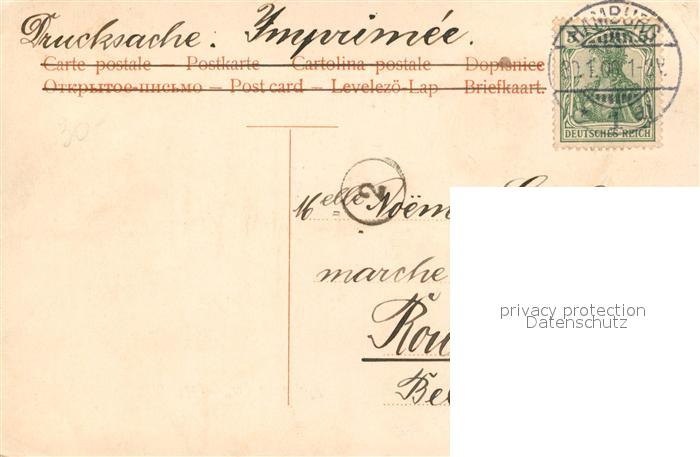 Drucksache. Imprimée.
Carte postale — Postkarte — Cartolina postale Dopisnice
Открытое-письмо — Post card — Levelező-Lap — Briefkaart.
HAMBURG
5 5
DEUTSCHES REICH
1
30-
2
Melle Noëm
marche
Rou
Bel
privacy protection
Datenschutz